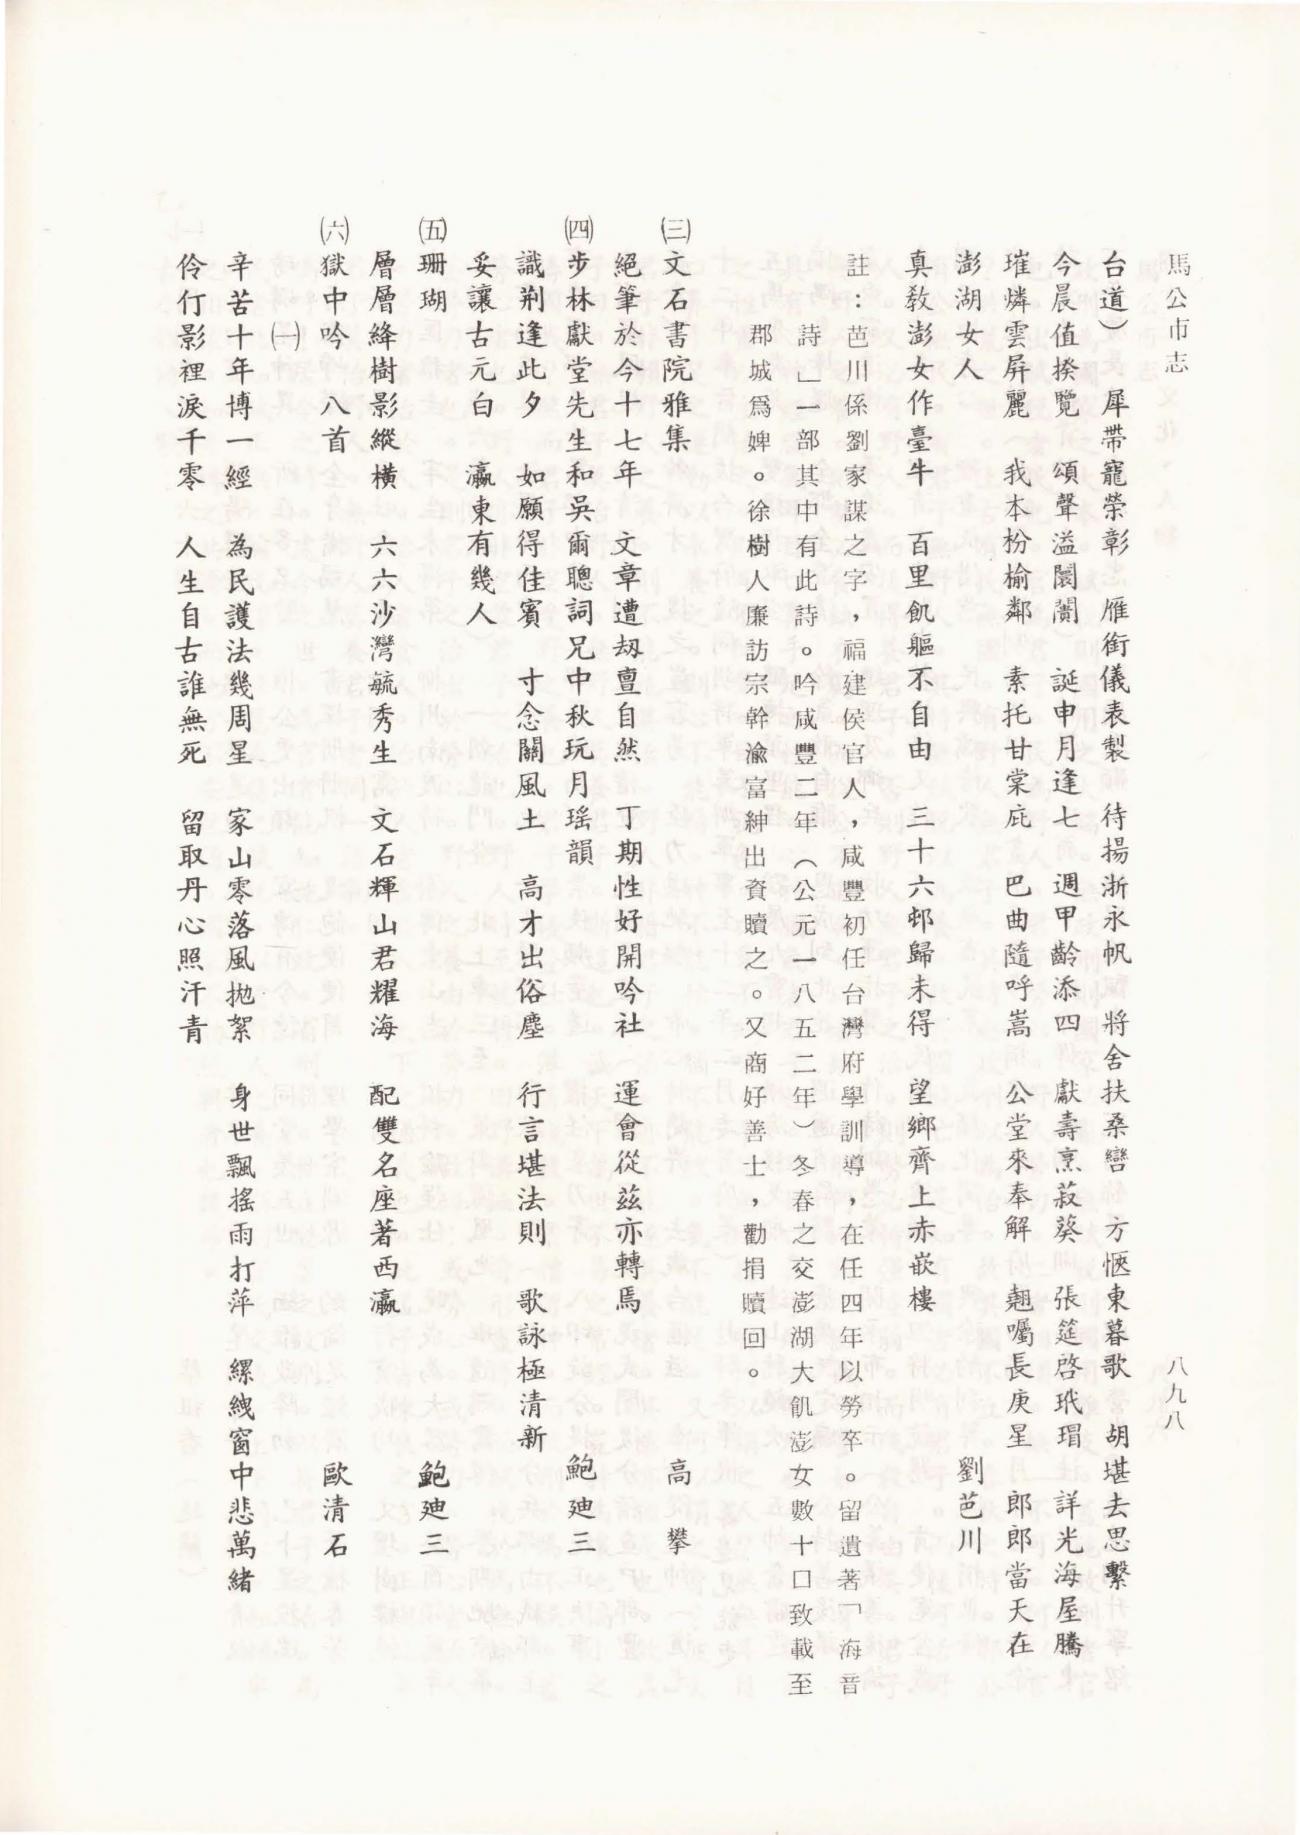 馬公市志
八九八
台道）犀帶寵榮彰　雁銜儀表製　待揚浙永帆　將舍扶桑巒　方愜東暮歌　胡堪去思繫
今晨值揆覽　頌聲溢闤闠　誕申月逢七　週甲齡添四　獻壽烹菽葵　張筵啓玳瑁　詳光海屋騰
璀燐雲屏麗　我本枌榆鄰　素托甘棠庇　巴曲隨呼嵩　公堂來奉解　翹囑長庚星　郎郎當天在
澎湖女人　劉芑川
真教澎女作臺牛　百里飢軀不自由　三十六邨歸未得　望鄉齊上赤嵌樓
註：芭川係劉家謀之字，福建侯官人，咸豐初任台灣府學訓導，在任四年以勞卒。留遺著「海音
詩」一部其中有此詩。吟咸豐二年（公元一八五二年）冬春之交澎湖大飢澎女數十口致載至
郡城爲婢。徐樹人廉訪宗幹渝富紳出資贖之。又商好善士，勸捐贖回。
㈢文石書院雅集　高攀
絕筆於今十七年　文章遭刼亶自然　丁期性好開吟社　運會從茲亦轉馬
㈣步林獻堂先生和吳爾聰詞兄中秋玩月瑤韻　鮑廸三
識荆逢此夕　如願得佳賓　寸念關風土　高才出俗塵　行言堪法則　歌詠極清新
妥讓古元白　瀛東有幾人
㈤珊瑚　鮑廸三
層層絳樹影縱橫　六六沙灣毓秀生　文石輝山君耀海　配雙名座著西瀛
㈥獄中吟八首　歐清石
㈠
辛苦十年博一經　為民護法幾周星　家山零落風拋絮　身世飄搖雨打萍　縲絏窗中悲萬緒
伶仃影裡淚千零　人生自古誰無死　留取丹心照汗青